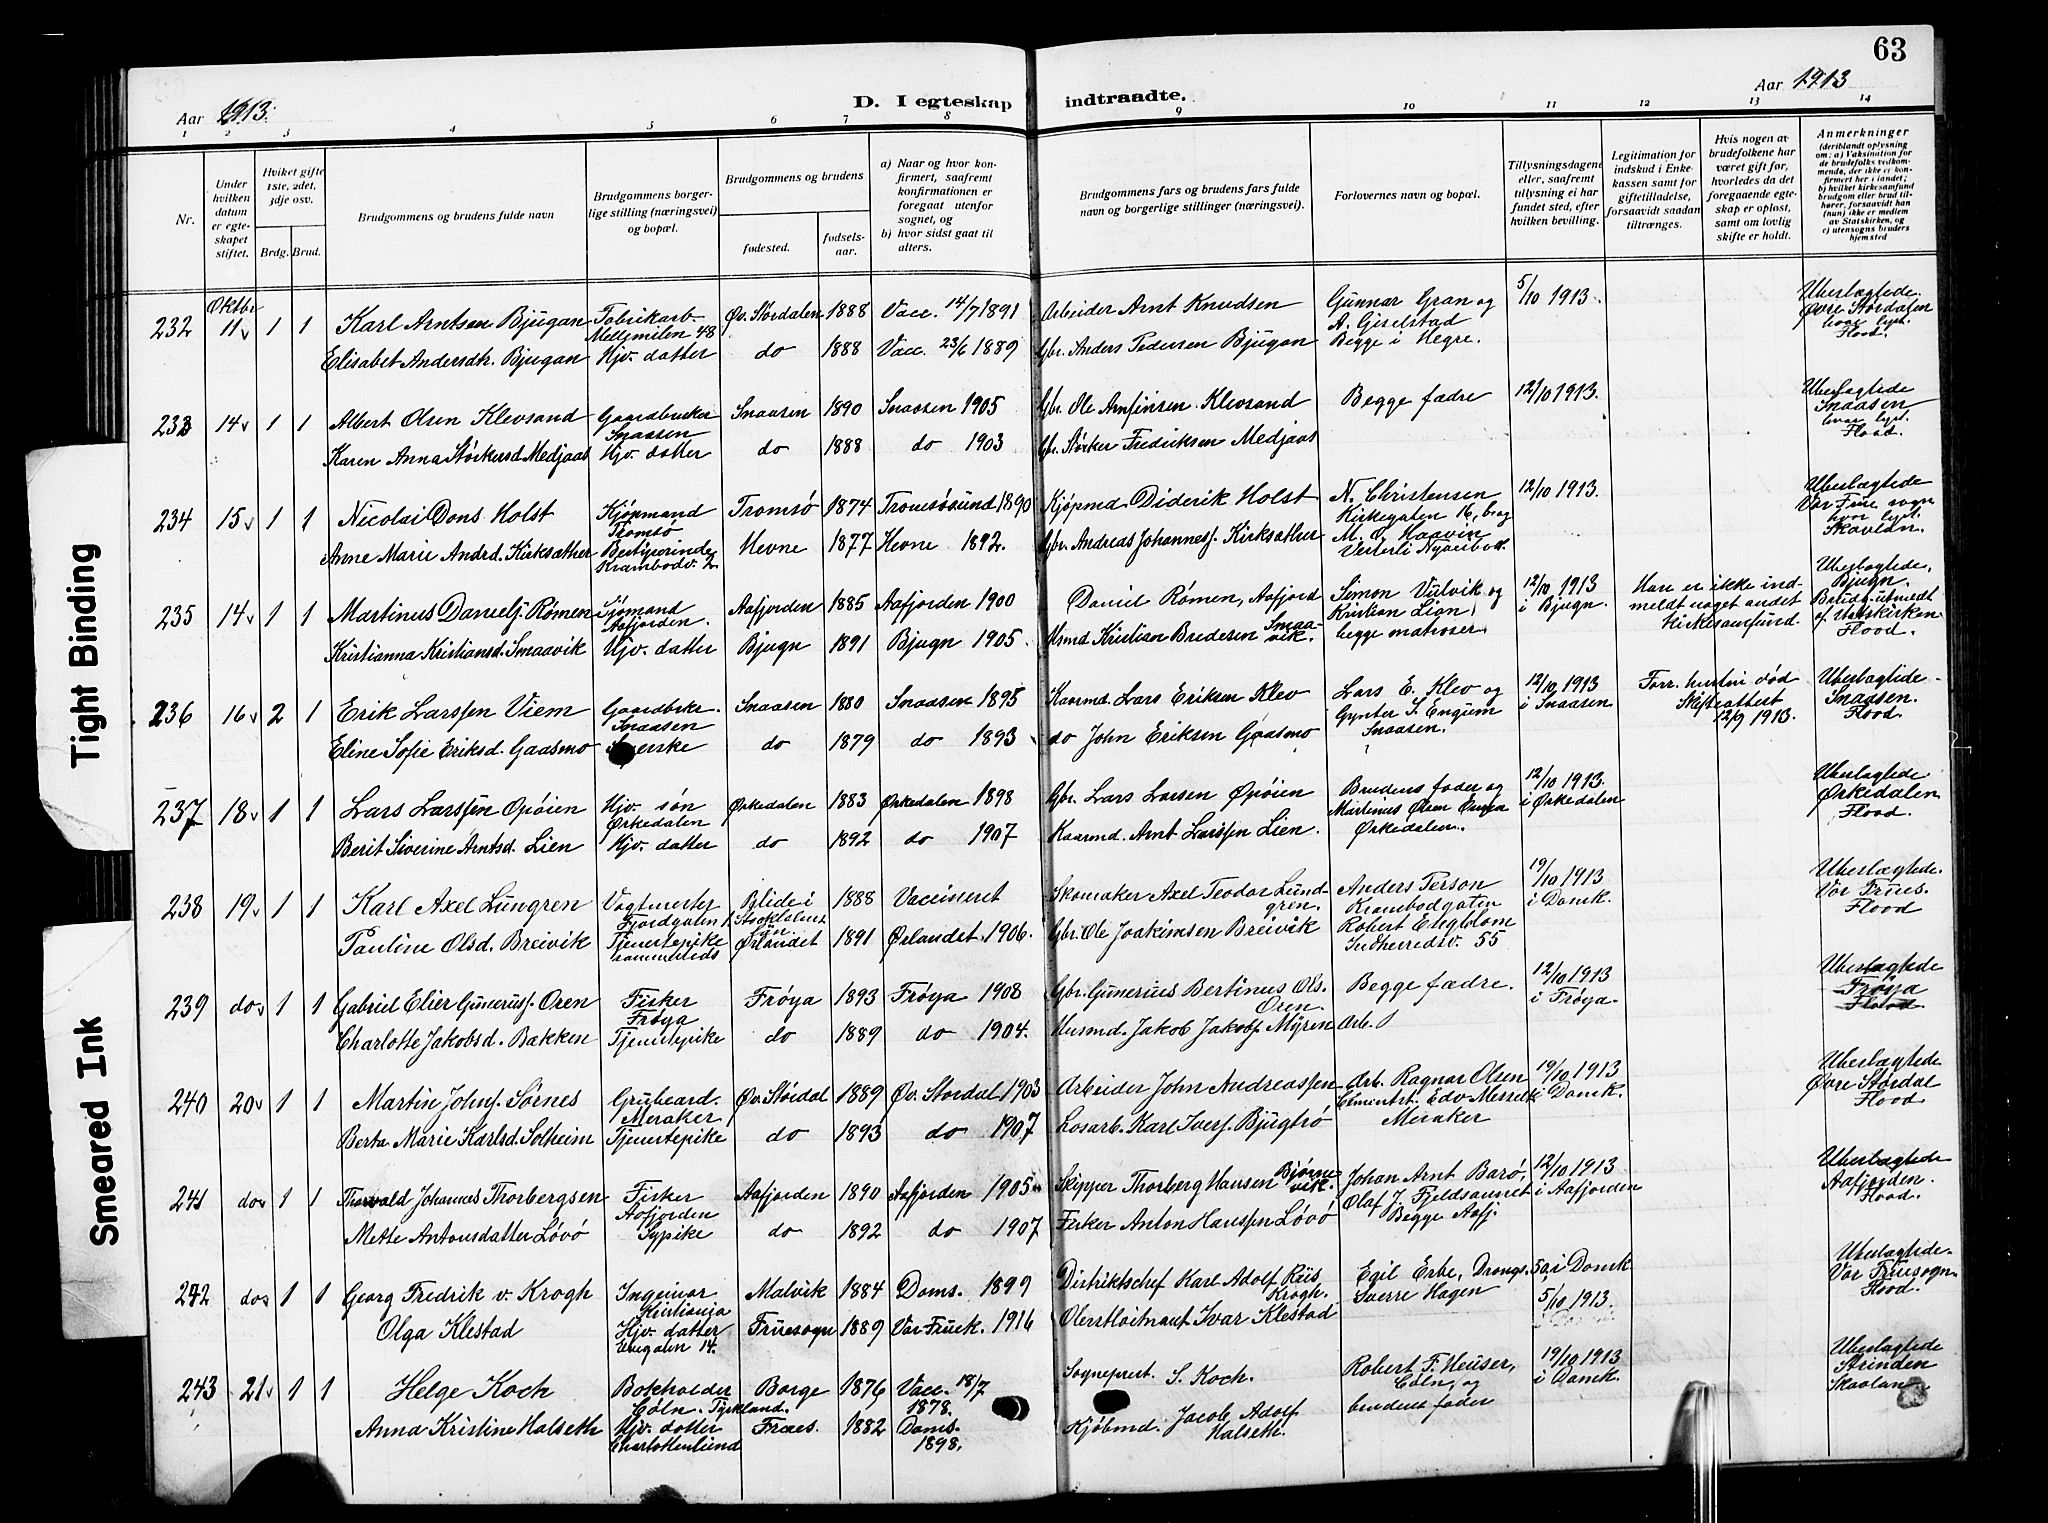 63
Aar 1913.
D. I egteskap indtraadte.
Aar 1913
1 2 3 4 5 6 7 8 9 10 11 12 13 14
Nr.
Under hvilken datum er egteskapet stiftet.
Hviket gifte 1ste, 2det, 3dje osv.
Brdg. Brud.
Brudgommens og brudens fulde navn
Brudgommens borgerlige stilling (næringsvei) og bopæl.
Brudgommens og brudens
fødested.
fødselsaar.
a) Naar og hvor konfirmert, saafremt konfirmationen er foregaat utenfor sognet, og
b) hvor sidst gaat til alters.
Brudgommens fars og brudens fars fulde navn og borgerlige stillinger (næringsvei).
Forlovernes navn og bopæl.
Tillysningsdagene eller, saafremt tillysning ei har fundet sted, efter hvilken bevilling.
Legitimation for indskud i Enkekassen samt for giftetilladelse, forsaavidt saadan tiltrænges.
Hvis nogen av brudefolkene har været gift før, hvorledes da det foregaaende egteskap er opløst, samt om lovlig skifte er holdt.
Anmerkninger (deriblandt oplysning om: a) Vaksination for de brudefolks vedkommende, der ikke er konfirmert her i landet; b) hvilket kirkesamfund brudgom eller brud tilhører, forsaavidt han (hun) ikke er medlem av Statskirken, og c) utensogns bruders hjemsted
Oktbr
232 11 1 1 Karl Arntsen Bjugan Fabrikarb. Mellemilen 48 Øv. Stordalen 1888 Vacc. 14/7 1891 Arbeider Arnt Knudsen Gunnar Gran og A. Gjelstad Begge i Hegre. 5/10 1913. Uberlægtede Øvre Stordalen hvor lyst. Flood.
Elisabet Andersdh. Bjugan Hjv. datter do 1888 Vacc. 23/6 1889 Gbr. Anders Pedersen Bjugan
233 14 1 1 Albert Olsen Klevsand Gaardbruker Snaasen Snaasen 1890 Snaasen 1905 Gbr. Ole Arnfinsen Klevsand Begge fædre 12/10 1913. Uberlægtede Snaasen hvor lyst. Flood.
Karen Anna Størkersd Medjaas Hjv. datter do 1888 do 1903 Gbr. Størker Fredriksen Medjaas
234 15 1 1 Nicolai Dons Holst Kjøpmand Tromsø Tromsø 1874 Tromsøsund 1890 Kjøpmd. Diderik Holst N. Christensen Kirkegaten 16, b og M. O. Haavin 12/10 1913. Uberlægtede Vor Frue sogn hvor lyst. Skavlan.
Anne Marie Andrd. Kirksæther Bestyrerinde Krambodv. 2 Hevne 1877 Hevne 1892. Gbr. Andreas Johannesf. Kirksæther
235 14 1 1 Martinus Danielsf. Rømen Sjømand i Aafjorden. Aafjorden 1885 Aafjorden 1900 Daniel Rømen, Aafjord Simon Vulvik og Kristian Lian, begge matroser 12/10 1913 i Bjugn. Han er ikke indmeldt noget andet kirkesamfund. Uberlægtede, Bjugn. Brudg. utmeldt af Statskirken Flood.
Kristianna Kristiansd. Smaavik Hjv. datter Bjugn 1891 Bjugn 1905. Husmd Kristian Bredesen Smaavik.
236 16 2 1 Erik Larssen Viem Gaardbrke. Snaasen Snaasen 1880 Snaasen 1895 Kaarmd. Lars Eriksen Klev Lars E. Klev og Gynter S. Engum Snaasen. 12/10 1913 i Snaasen Forr. hustru død Skifteattest 12/9 1913. Uberlægtede Snaasen. Flood.
Eline Sofie Eriksd. Gaasmo do 1879 do 1893 do John Eriksen Gaasmo
237 18 1 1 Lars Larssen Opøien Hjv. søn Ørkedalen Ørkedalen 1883 Ørkedalen 1898 Gbr. Lars Larsen Opøien Brudens fader og Martinus Olsen Ørkedalen. 12/10 1913. i Ørkedalen Uberlægtede Ørkedalen Flood.
Berit Siverine Arntsd. Lien Hjv. datter do 1892 do 1907 Kaarmd. Arnt Larssen Lien.
238 19 1 1 Karl Axel Lungren Vogtmester Fjordgaten 1 1888 Vaccineret Skomaker Axel Teodor Lundgren. Anders Person Krambodgaten Robert Engblom Indherredsv. 55 19/10 1913 i Domk. Uberlægtede. Vor Frues. Flood
Pauline Olsd. Breivik Tjenestepike sammesteds Ørlandet 1891 Ørlandet. 1906. Gbr. Ole Joakimsen Breivik
239 do 1 1 Gabriel Elier Gunerusf. Oren Fisker Frøya Frøya 1893 Frøya 1908 Gbr. Gunerius Bertinus Ols. Oren. Begge fædre. 12/10 1913 i Frøya. Uberlægtede Frøya Flood
Charlotte Jakobsd. Bækken Tjenestepike do 1889 do 1904. Husmd. Jakob Jakobsf. Myren Arb.
240 20 1 1 Martin Johnsf. Sørnes Grubearb. Meraker Øv. Stördal 1889 Øv. Stordal 1903 Arbeider John Andreassen Arb. Ragnar Olsen Cementst. Edv Messelt Meraker 19/10 1913 i Domk. Uberlægtede Øvre Størdal Flood.
Berta Marie Karlsd. Solheim Tjenestepike do 1893 do 1907 Losarb. Karl Iversf. Bjugtrö
241 do 1 1 Thorvald Johannes Thorbergsen Fisker Aafjorden Aafjorden 1890 Aafjorden 1905 Skipper Thorberg Hansen Bjørnevik. Johan Arnt Barö, Olaf J. Fjeldsaunet Begge Aafj. 12/10 1913 i Aafjorden Uberlægtede Aafjorden. Flood.
Mette Antonsdatter Løvö Typike do 1892 do 1907 Fisker Anton Hanssen Løvö
242 do 1 1 Georg Fredrik v. Krogh Ingeniør Kristiania Malvik 1884 Doms. 1899 Distriktschef Karl Adolf Riis Krogh. Egil Erbe, Drongs. 50, Sverre Hagen i Domk 5/10 1913. Uberlægtede. Vor Fruesogn. Flood.
Olga Klestad Hjv. datter Engaten 14. Fruesogn 1889 Vor Fruek. 1916 Oberstløitnant Ivar Klestad
243 21 1 1 Helge Koch Bokholder Cöln. Tyrkland. Borge 1876 Vacc. 18/7 1878. Sogneprest. S. Koch. Robert F. Heuser, Cöln, og brudens fader 19/10 1913 i Domk. Uberlægtede Strinden Skavlan
Anna Kristine Halseth Hjv. datter Charlottenlund Frues. 1882 Doms. 1898. Kjøbmd. Jacob Adolf Halseth.
Tight Binding
Smeared Ink